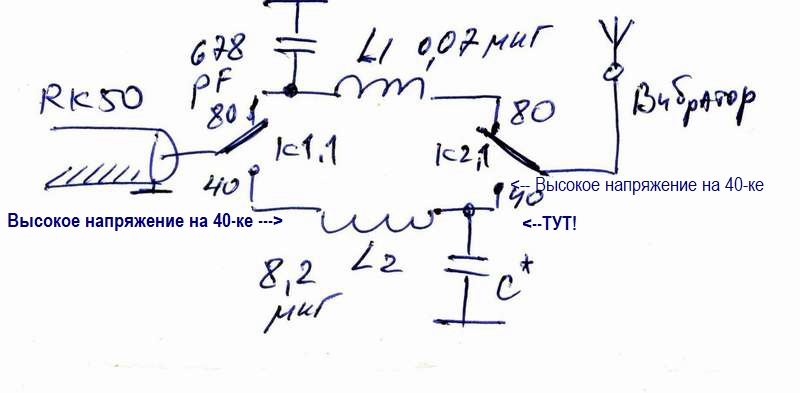 678
PF
L1 0,07 мкг
RK50
80
K1,1
K2,1
80
Вибратор
40
40
<-- Высокое напряжение на 40-ке
Высокое напряжение на 40-ке --->
<--ТУТ!
8,2
мкг
L2
C*